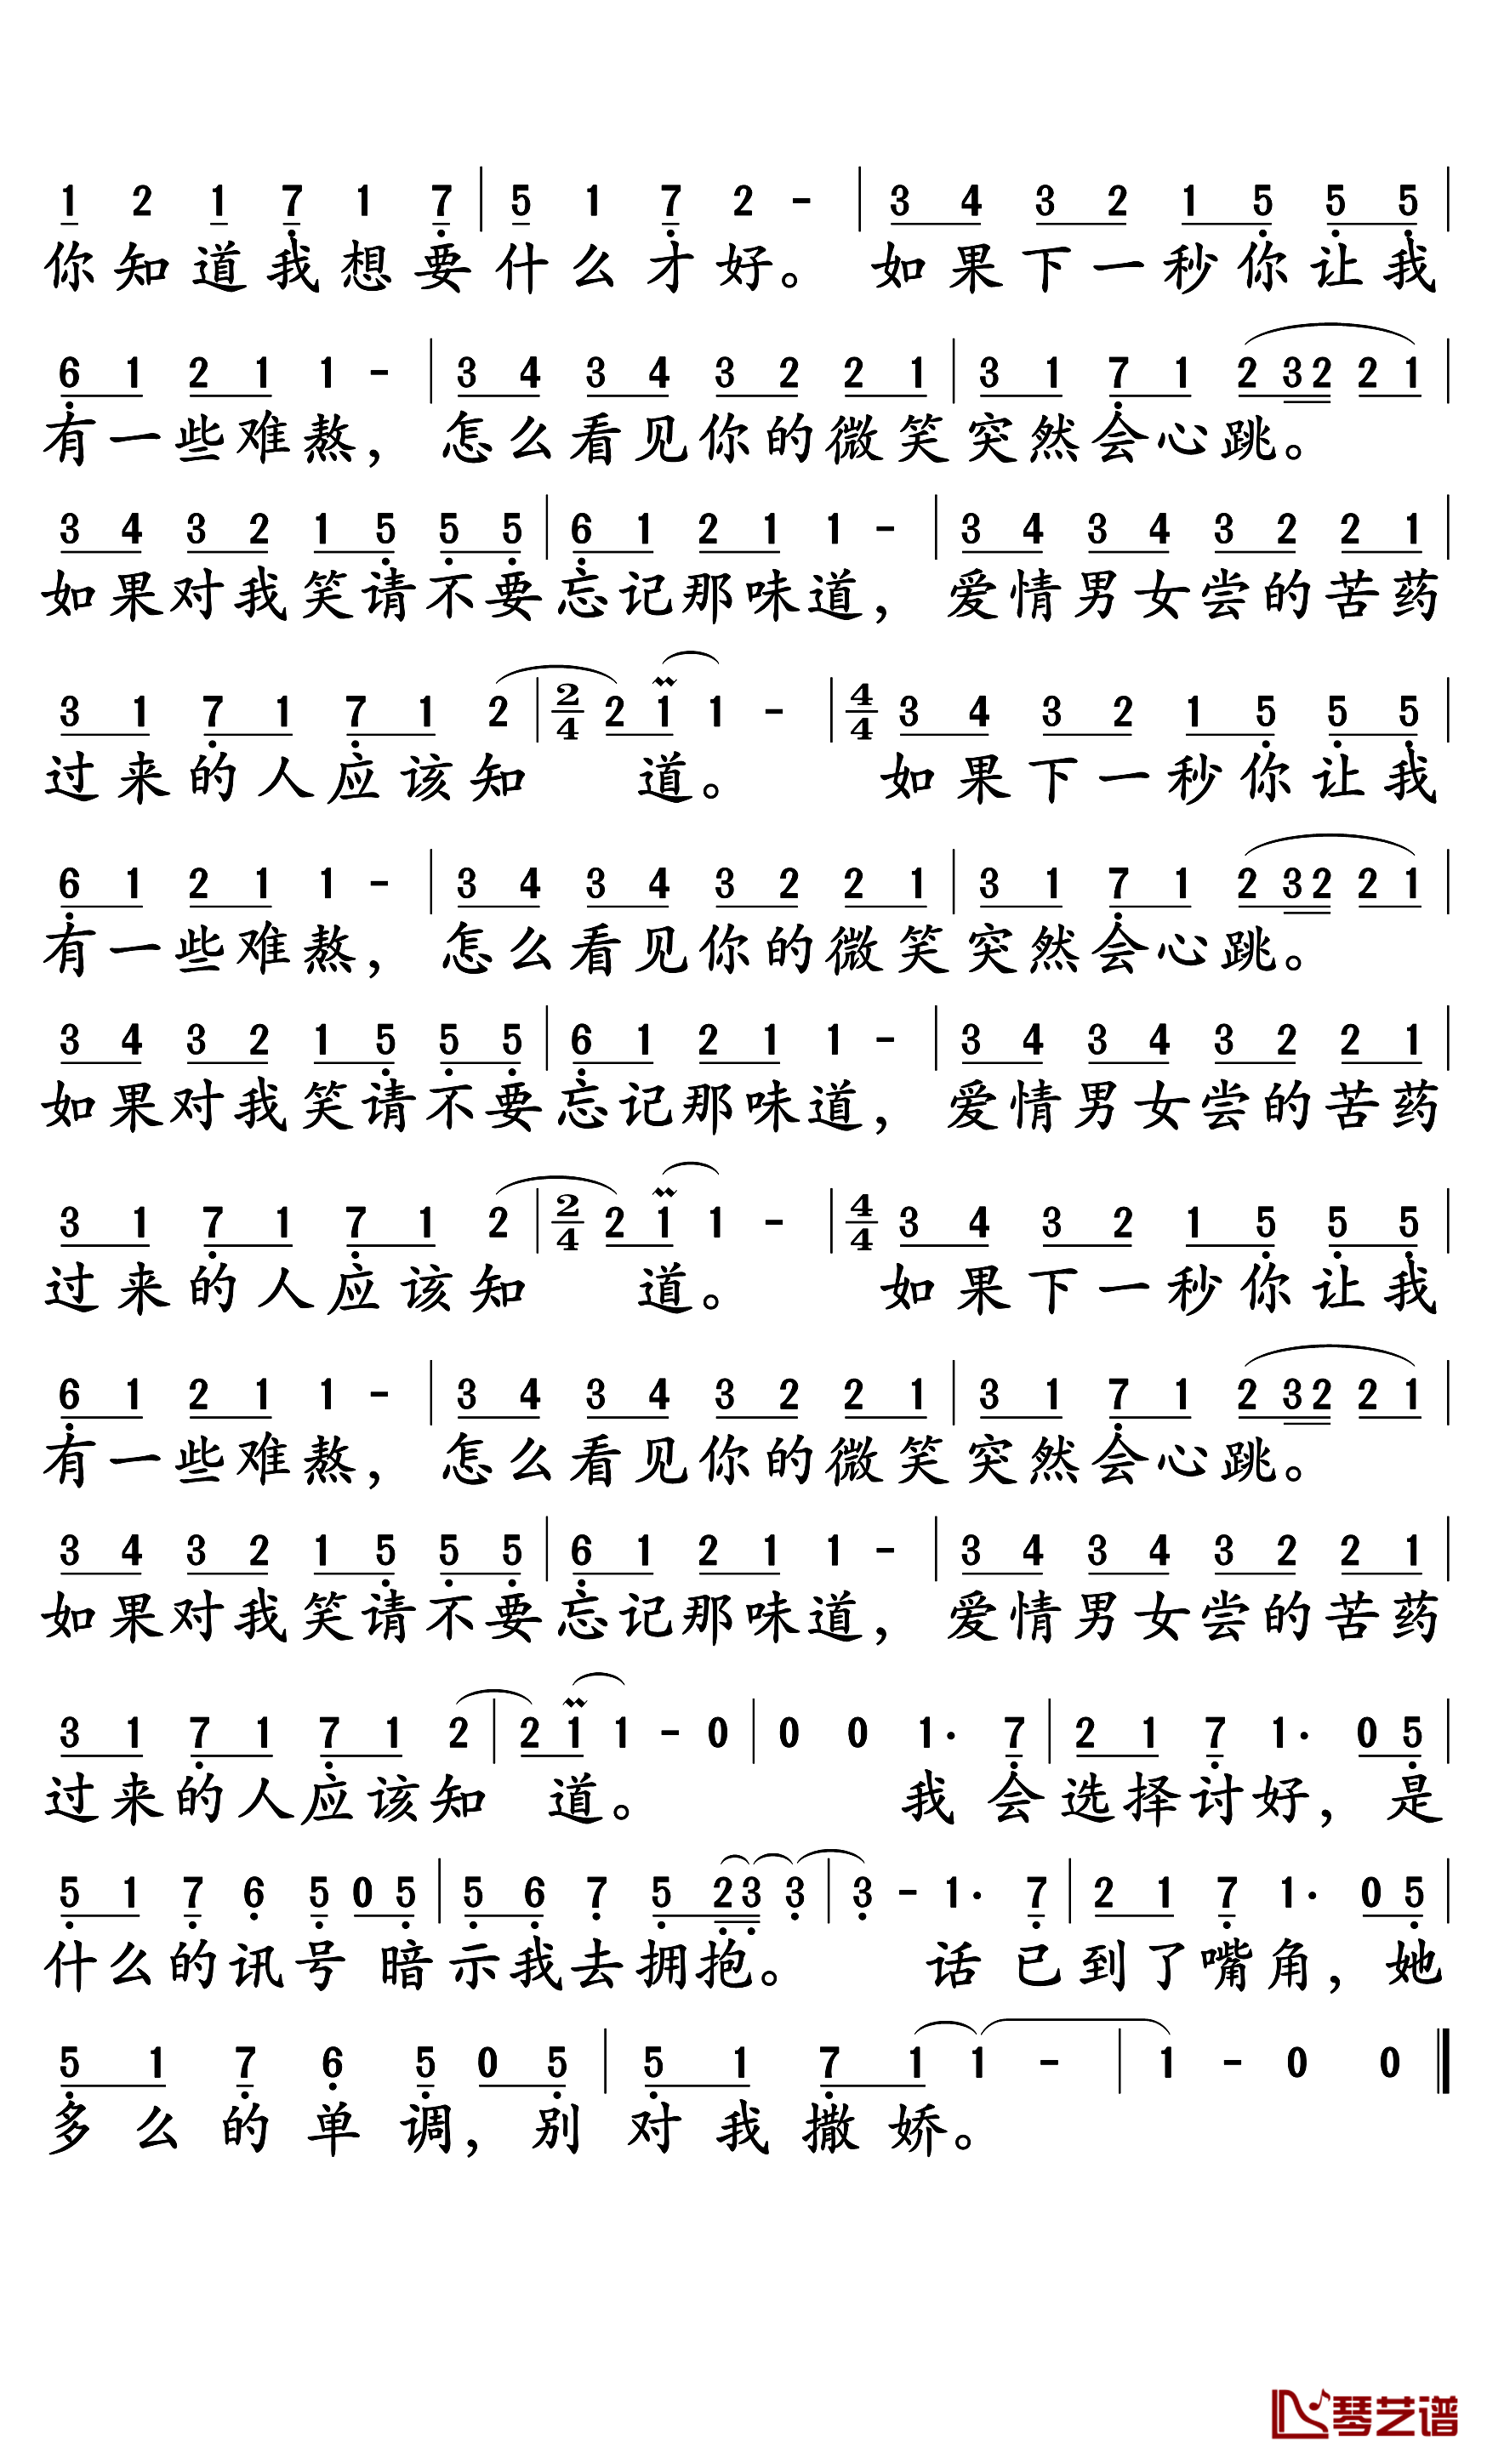 1 2 1 7 1 7 | 5 1 7 2 - | 3 4 3 2 1 5 5 5 |
你知道我想要什么才好。如果下一秒你让我
6 1 2 1 1 - | 3 4 3 4 3 2 2 1 | 3 1 7 1 2 3 2 2 1 |
有一些难熬，怎么看见你的微笑突然会心跳。
3 4 3 2 1 5 5 5 | 6 1 2 1 1 - | 3 4 3 4 3 2 2 1 |
如果对我笑请不要忘记那味道，爱情男女尝的苦药
3 1 7 1 7 1 2 | 2/4 2 1 1 - | 4/4 3 4 3 2 1 5 5 5 |
过来的人应该知道。如果下一秒你让我
6 1 2 1 1 - | 3 4 3 4 3 2 2 1 | 3 1 7 1 2 3 2 2 1 |
有一些难熬，怎么看见你的微笑突然会心跳。
3 4 3 2 1 5 5 5 | 6 1 2 1 1 - | 3 4 3 4 3 2 2 1 |
如果对我笑请不要忘记那味道，爱情男女尝的苦药
3 1 7 1 7 1 2 | 2/4 2 1 1 - | 4/4 3 4 3 2 1 5 5 5 |
过来的人应该知道。如果下一秒你让我
6 1 2 1 1 - | 3 4 3 4 3 2 2 1 | 3 1 7 1 2 3 2 2 1 |
有一些难熬，怎么看见你的微笑突然会心跳。
3 4 3 2 1 5 5 5 | 6 1 2 1 1 - | 3 4 3 4 3 2 2 1 |
如果对我笑请不要忘记那味道，爱情男女尝的苦药
3 1 7 1 7 1 2 | 2 1 1 - 0 | 0 0 1· 7 | 2 1 7 1· 0 5 |
过来的人应该知道。我会选择讨好，是
5 1 7 6 5 0 5 | 5 6 7 5 2 3 3 | 3 - 1· 7 | 2 1 7 1· 0 5 |
什么的讯号暗示我去拥抱。话已到了嘴角，她
5 1 7 6 5 0 5 | 5 1 7 1 1 - | 1 - 0 0 ‖
多么的单调，别对我撒娇。
琴艺谱